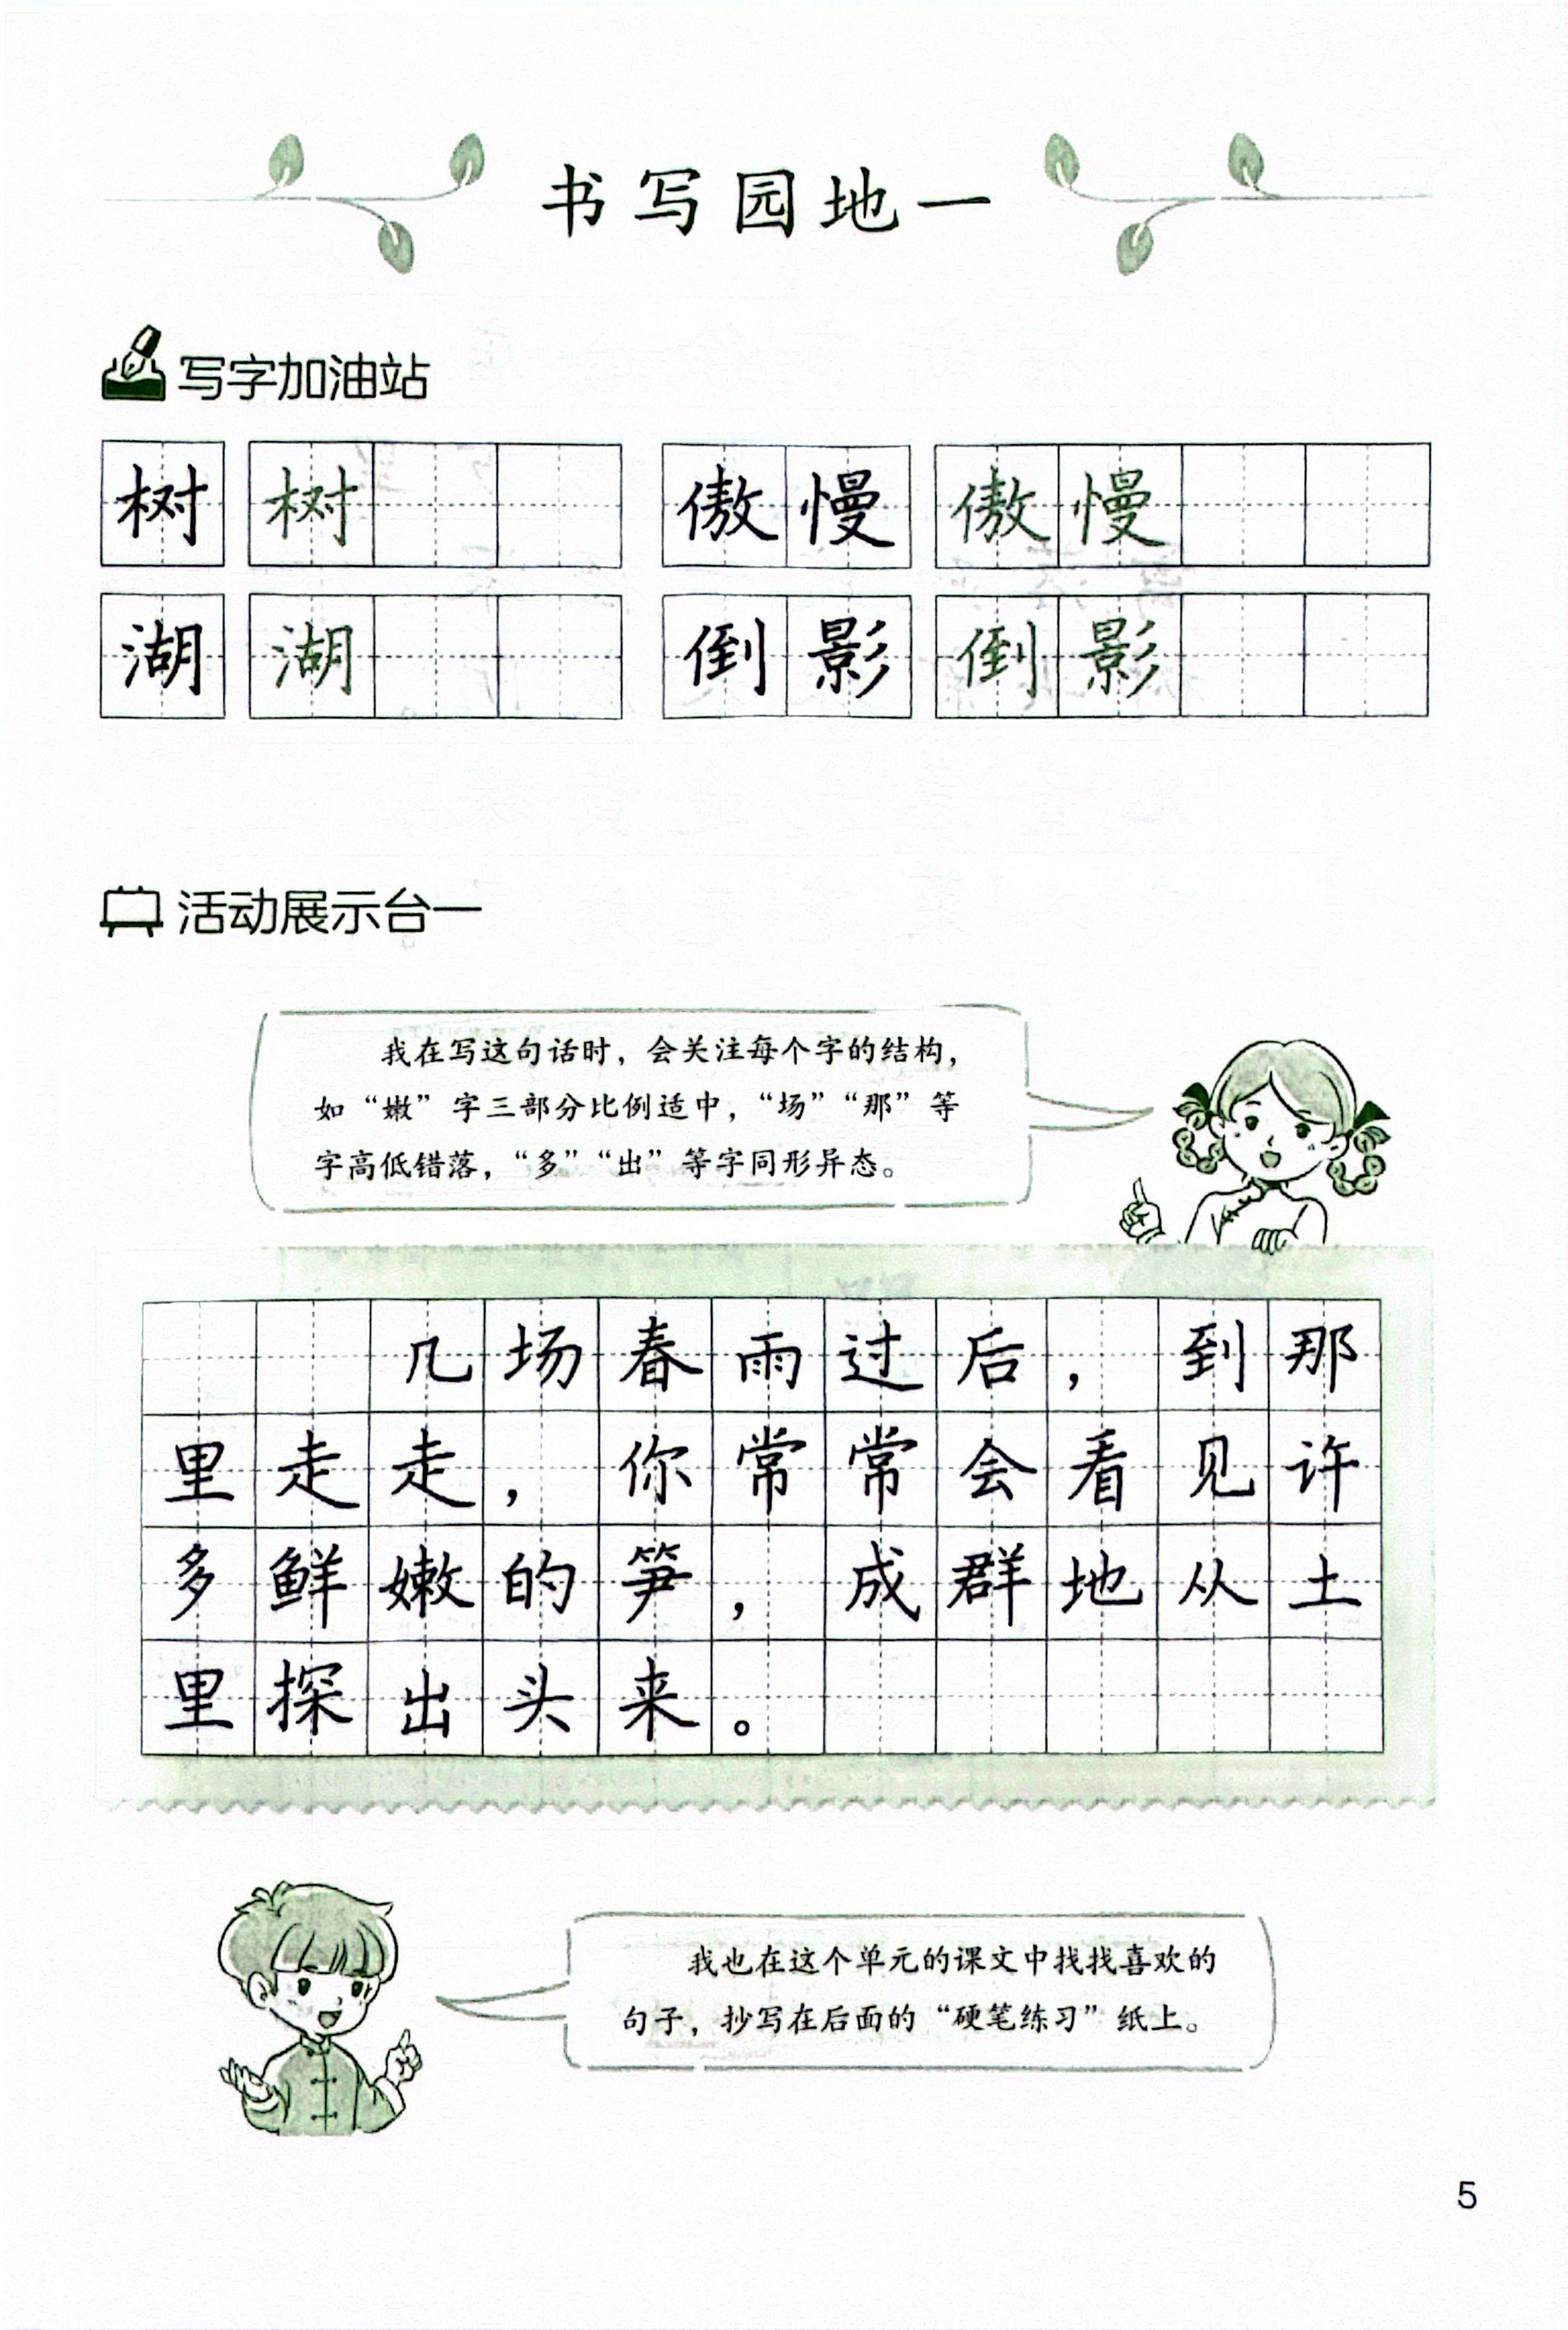 书写园地一
写字加油站
树 树 傲慢 傲慢
湖 湖 倒影 倒影
活动展示台一
我在写这句话时，会关注每个字的结构，
如“嫩”字三部分比例适中，“场”“那”等
字高低错落，“多”“出”等字同形异态。
几场春雨过后，到那
里走走，你常常会看见许
多鲜嫩的笋，成群地从土
里探出头来。
我也在这个单元的课文中找找喜欢的
句子，抄写在后面的“硬笔练习”纸上。
5